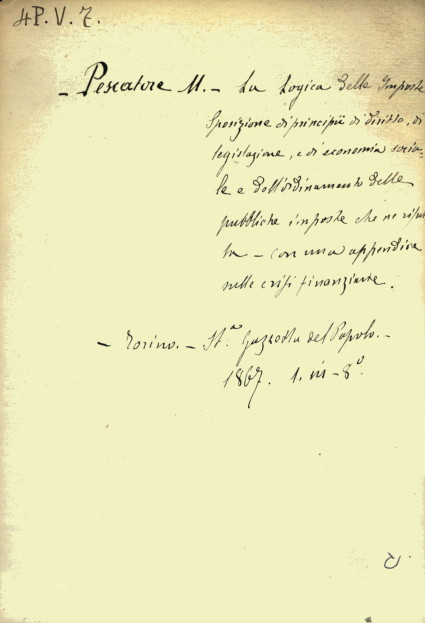 4P.V.7.
- Pescatore M. - La Logica delle Imposte
Sposizione di principii di diritto, di
legislazione, e di economia socia-
le e dell'ordinamento delle
pubbliche imposte che ne risul
ta - con una appendice
sulle crisi finanziarie.
- Torino. - St.ª Gazzetta del Popolo. -
1867. 1. in - 8º.